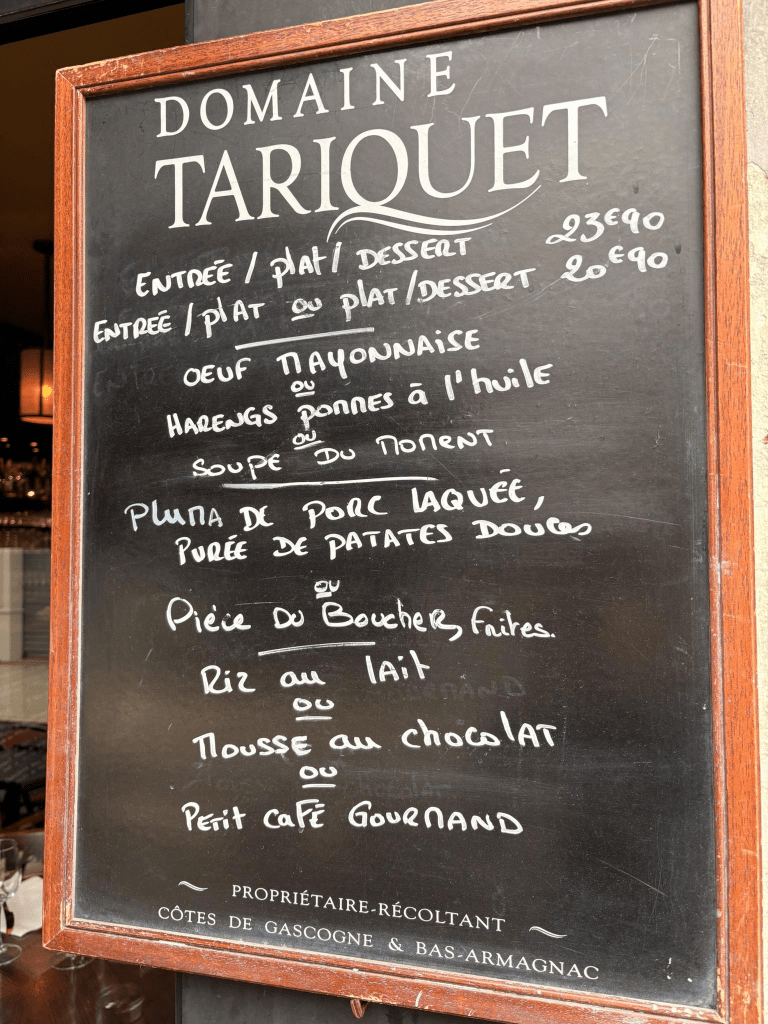 DOMAINE
TARIQUET
ENTREÉ / plAt / DESSERT 23€90
ENTREÉ / plAT ou plAT / DESSERT 20€90
OEUF MAYONNAISE
ou
HARENGS POMMES à l'huilE
ou
SOUPE DU MOMENT
PlUMA DE PORC LAQUÉE,
PURÉE DE PATATES DOUCES
ou
Pièce DU BoucheR, FRites.
Riz au lAit
ou
MOUSSE au chocolAT
ou
PEtit caFÉ GOURMAND
PROPRIÉTAIRE-RÉCOLTANT
CÔTES DE GASCOGNE & BAS-ARMAGNAC